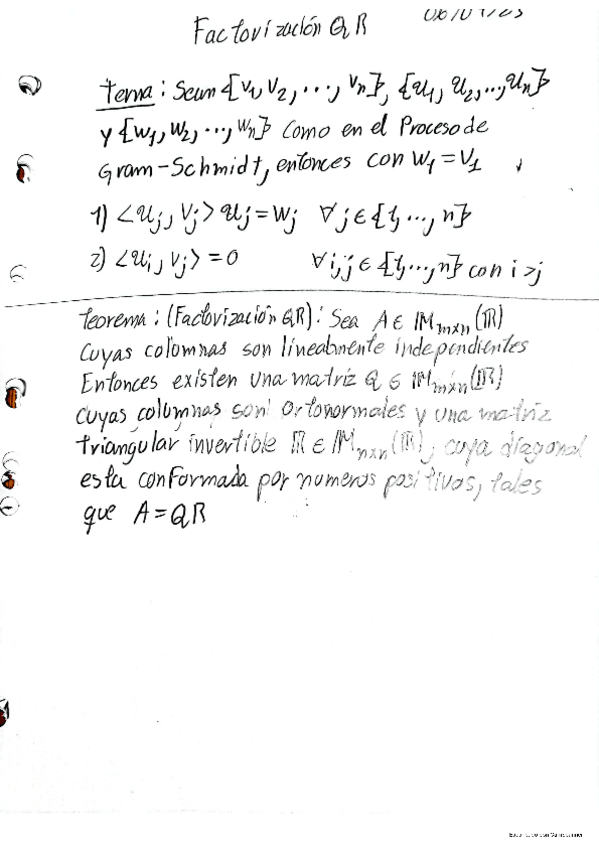 Factorización QR
tema: Sean {v1, v2, ..., vn}, {u1, u2, ..., un}
y {w1, w2, ..., wn} como en el Proceso de
Gram-Schmidt, entonces con w1 = v1
1) <uj, vj> uj = wj ∀j∈{1, ..., n}
2) <ui, vj> = 0 ∀i,j ∈ {1, ..., n} con i > j
teorema: (Factorización QR): Sea A ∈ Mmxn(R)
cuyas columnas son linealmente independientes
Entonces existen una matriz Q ∈ Mmxn(R)
cuyas columnas son ortonormales y una matriz
triangular invertible R ∈ Mnxn(R), cuya diagonal
esta conformada por numeros positivos, tales
que A = QR